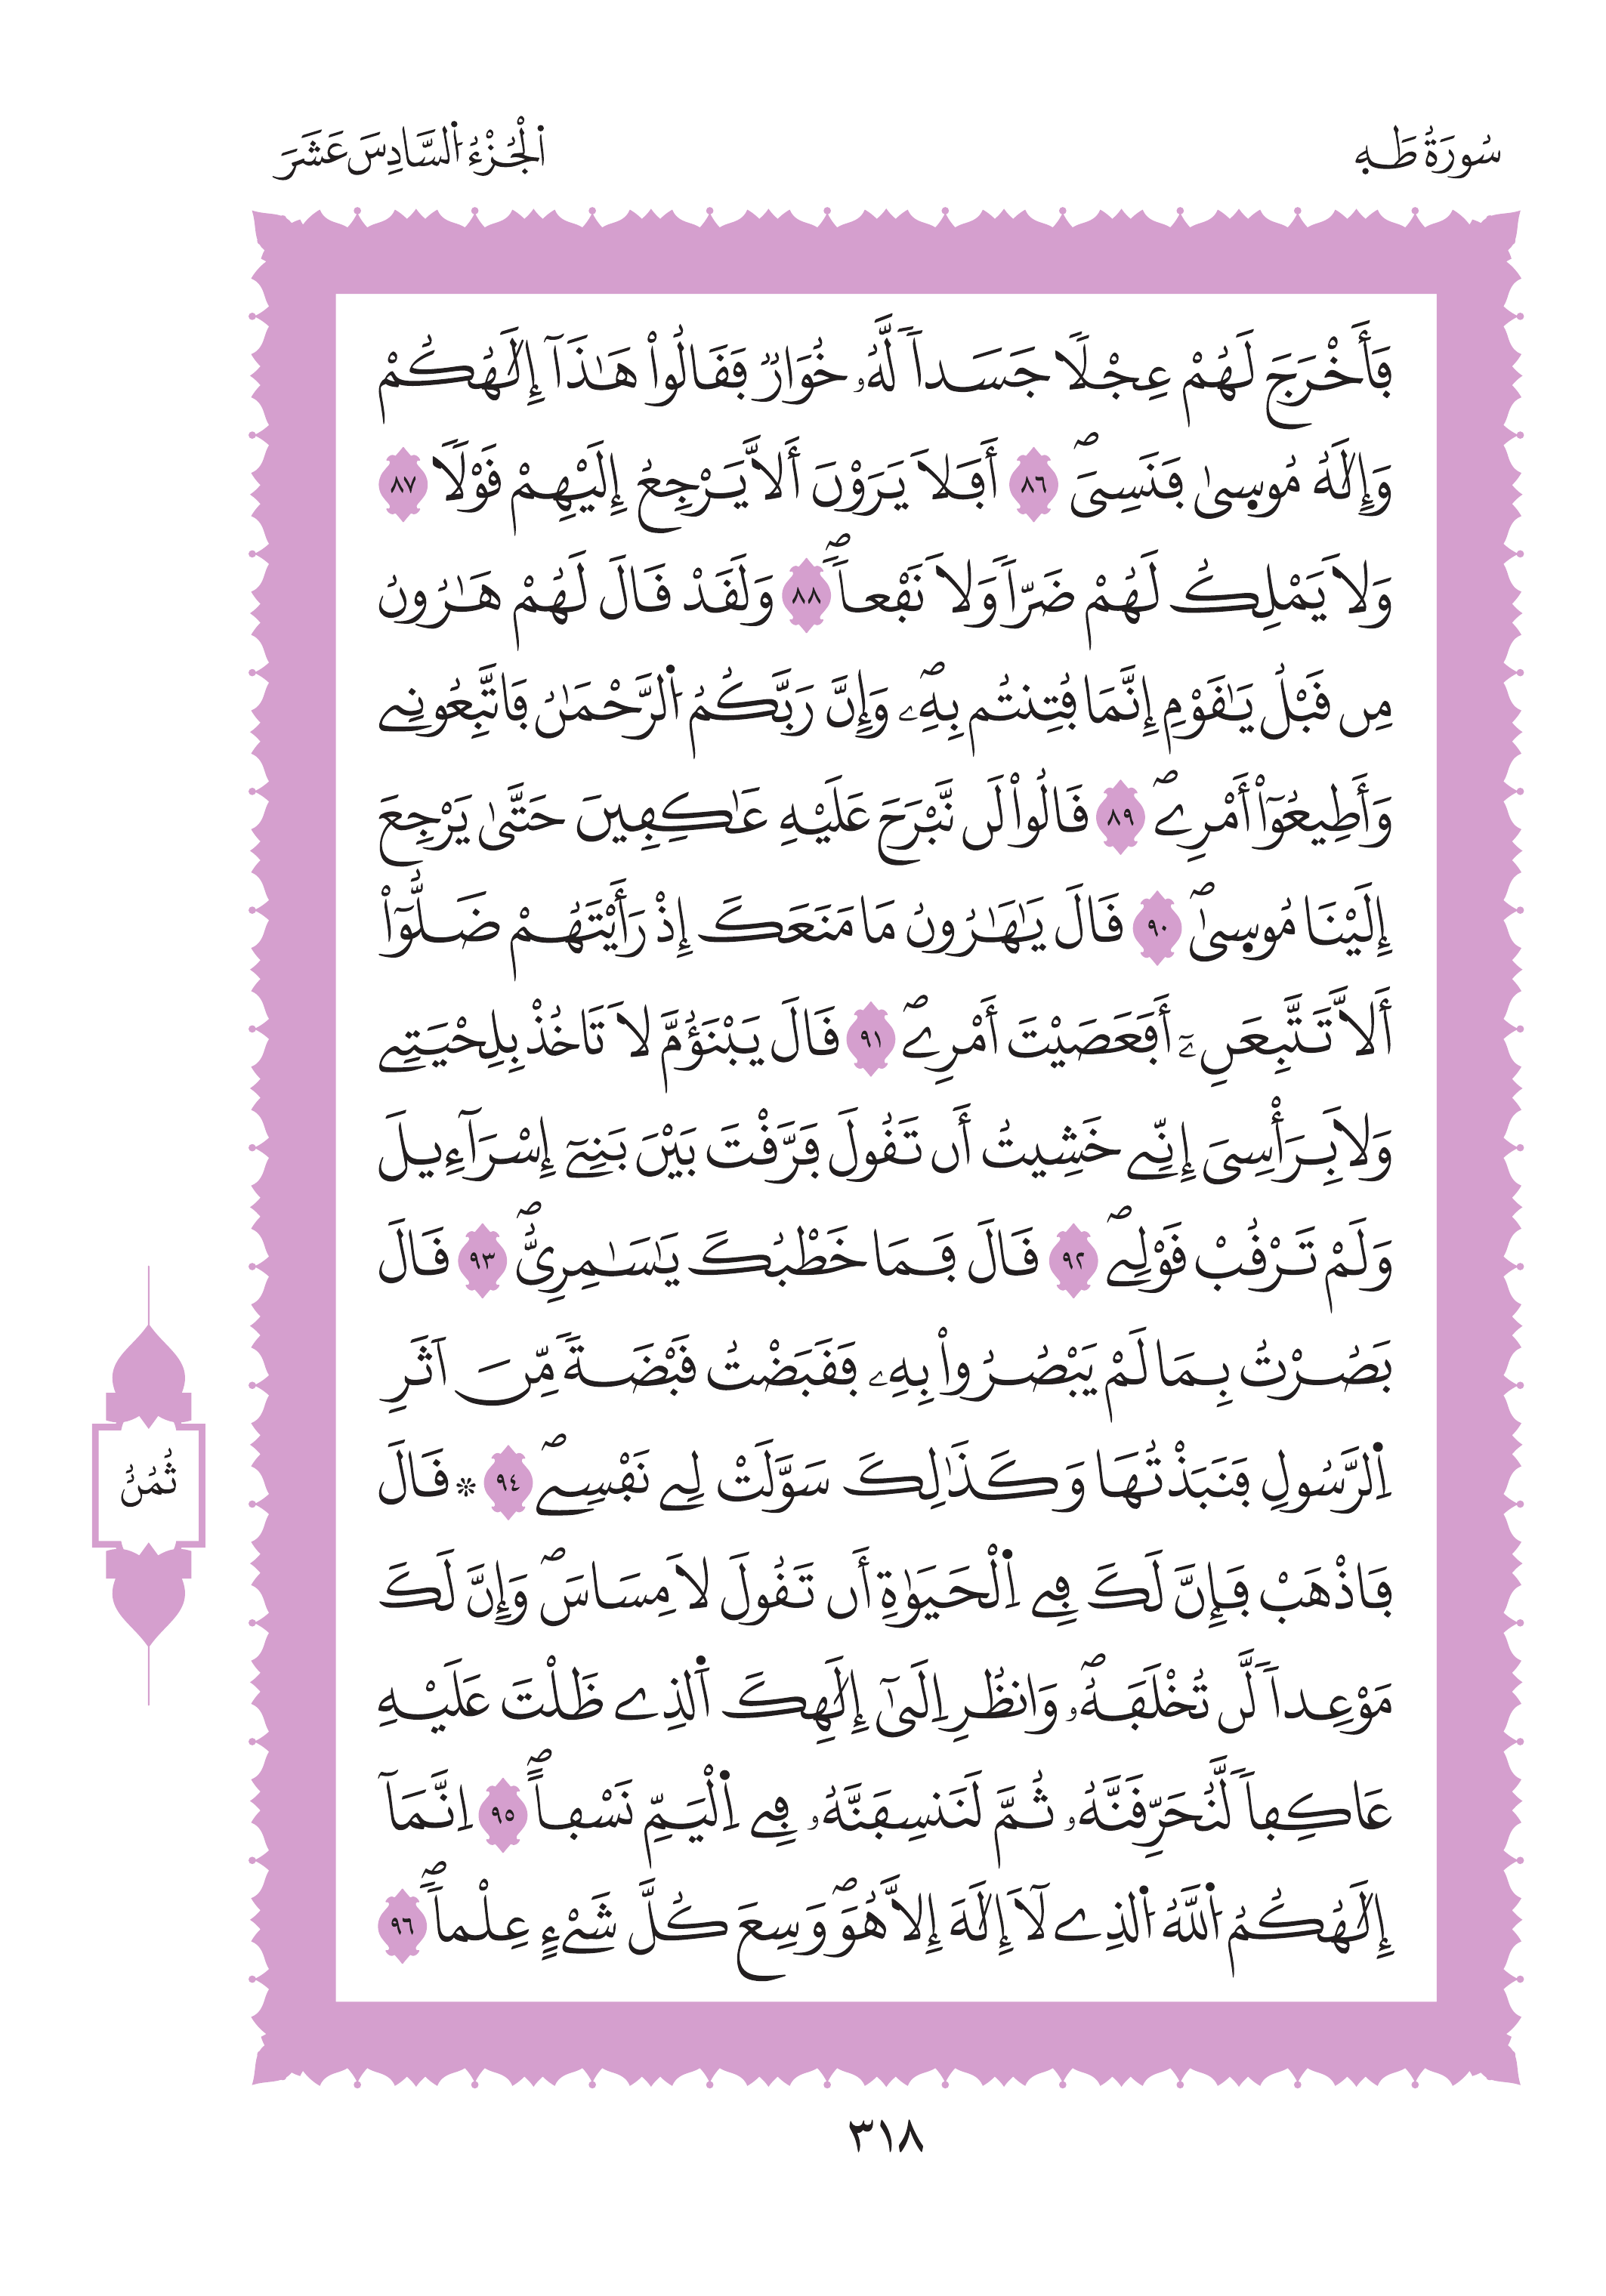 سُورَةُ طَهِ
اَ۬لْجُزْءُ اُ۬لسَّادِسَ عَشَرَ
فَأَخْرَجَ لَهُمْ عِجْلاٗ جَسَداٗ لَّهُۥ خُوَارٞ فَقَالُواْ هَٰذَآ إِلَٰهُكُمْ
وَإِلَٰهُ مُوس۪يٰ فَنَسِيَۖ ٨٦ أَفَلَا يَرَوْنَ أَلَّا يَرْجِعُ إِلَيْهِمْ قَوْلاٗ ٨٧
وَلَا يَمْلِكُ لَهُمْ ضَرّاٗ وَلَا نَفْعاٗۖ ٨٨ وَلَقَدْ قَالَ لَهُمْ هَٰرُونُ
مِن قَبْلُ يَٰقَوْمِ إِنَّمَا فُتِنتُم بِهِۦۖ وَإِنَّ رَبَّكُمُ اُ۬لرَّحْمَٰنُ فَاتَّبِعُونِے
وَأَطِيعُوٓاْ أَمْرِےۖ ٨٩ قَالُواْ لَن نَّبْرَحَ عَلَيْهِ عَٰكِفِينَ حَتَّىٰ يَرْجِعَ
إِلَيْنَا مُوس۪يٰۖ ٩٠ قَالَ يَٰهَٰرُونُ مَا مَنَعَكَ إِذْ رَأَيْتَهُمْ ضَلُّوٓاْ
أَلَّا تَتَّبِعَنِۦٓ أَفَعَصَيْتَ أَمْرِےۖ ٩١ قَالَ يَبْنَؤُمَّ لَا تَاخُذْ بِلِحْيَتِے
وَلَا بِرَأْسِيَ إِنِّے خَشِيتُ أَن تَقُولَ فَرَّقْتَ بَيْنَ بَنِےٓ إِسْرَآءِيلَ
وَلَمْ تَرْقُبْ قَوْلِےۖ ٩٢ قَالَ فَمَا خَطْبُكَ يَٰسَٰمِرِيُّۖ ٩٣ قَالَ
بَصُرْتُ بِمَا لَمْ يَبْصُرُواْ بِهِۦ فَقَبَضْتُ قَبْضَةٗ مِّنَ اَثَرِ
اِ۬لرَّسُولِ فَنَبَذْتُهَا وَكَذَٰلِكَ سَوَّلَتْ لِے نَفْسِےۖ ٩٤ ۞ قَالَ
فَاذْهَبْ فَإِنَّ لَكَ فِے اِ۬لْحَيَوٰةِ أَن تَقُولَ لَا مِسَاسَۖ وَإِنَّ لَكَ
مَوْعِداٗ لَّن تُخْلَفَهُۥۖ وَانظُرِ اِلَىٰٓ إِلَٰهِكَ اَ۬لذِے ظَلْتَ عَلَيْهِ
عَاكِفاٗ لَّنُحَرِّقَنَّهُۥ ثُمَّ لَنَنسِفَنَّهُۥ فِے اِ۬لْيَمِّ نَسْفاًۖ ٩٥ اِنَّمَآ
إِلَٰهُكُمُ اُ۬للَّهُ اُ۬لذِے لَآ إِلَٰهَ إِلَّا هُوَۖ وَسِعَ كُلَّ شَےْءٍ عِلْماٗۖ ٩٦
ثُمُنُ
٣١٨